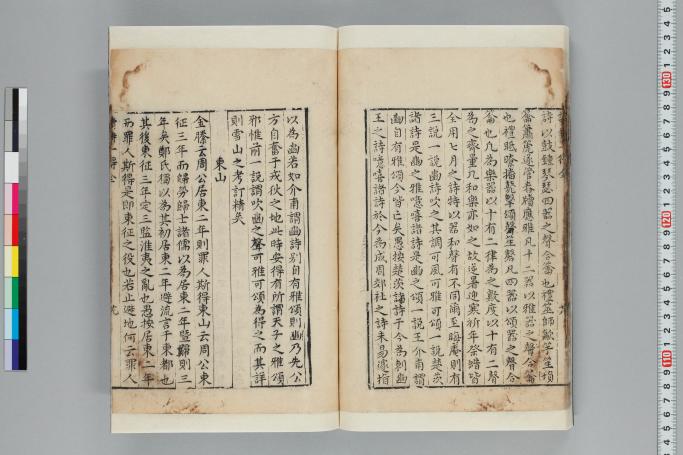 詩以鼓鐘琴瑟四器之聲合籥也禮笙師龡竽笙塤
籥簫篪篴管舂牘應雅凡十二器以雅器之聲合籥
也禮眡瞭播鼗擊頌磬笙磬凡四器以頌器之聲合
籥也凡為樂器以十有二律為之數度以十有二聲
為之齊量凡和樂亦如之故逆暑迎寒祈年祭蜡皆
全用七月之詩特以器和聲有不同爾至晦庵則有
三說一說豳詩吹之其調可風可雅可頌一說楚茨
諸詩是豳之雅噫嘻諸詩是豳之頌一說王介甫謂
豳自有雅頌今皆亡矣愚按楚茨諸詩于今為刺幽
王之詩噫嘻諸詩於今為成周郊社之詩未易遽指
以為豳若如介甫謂豳詩別自有雅頌則豳乃先公
方自奮于戎狄之地此時安得有所謂天子之雅頌
邪惟前一說謂吹豳之聲可雅可頌為得之而其詳
則雪山之考訂精矣
東山
金縢云周公居東二年則罪人斯得東山云周公東
征三年而歸勞歸士諸儒以為居東二年暨歸則三
年矣鄭氏獨以為其初居東二年避流言于東都也
其後東征三年定三監淮夷之亂也愚按居東二年
而罪人斯得是即東征之役也若止避地何云罪人